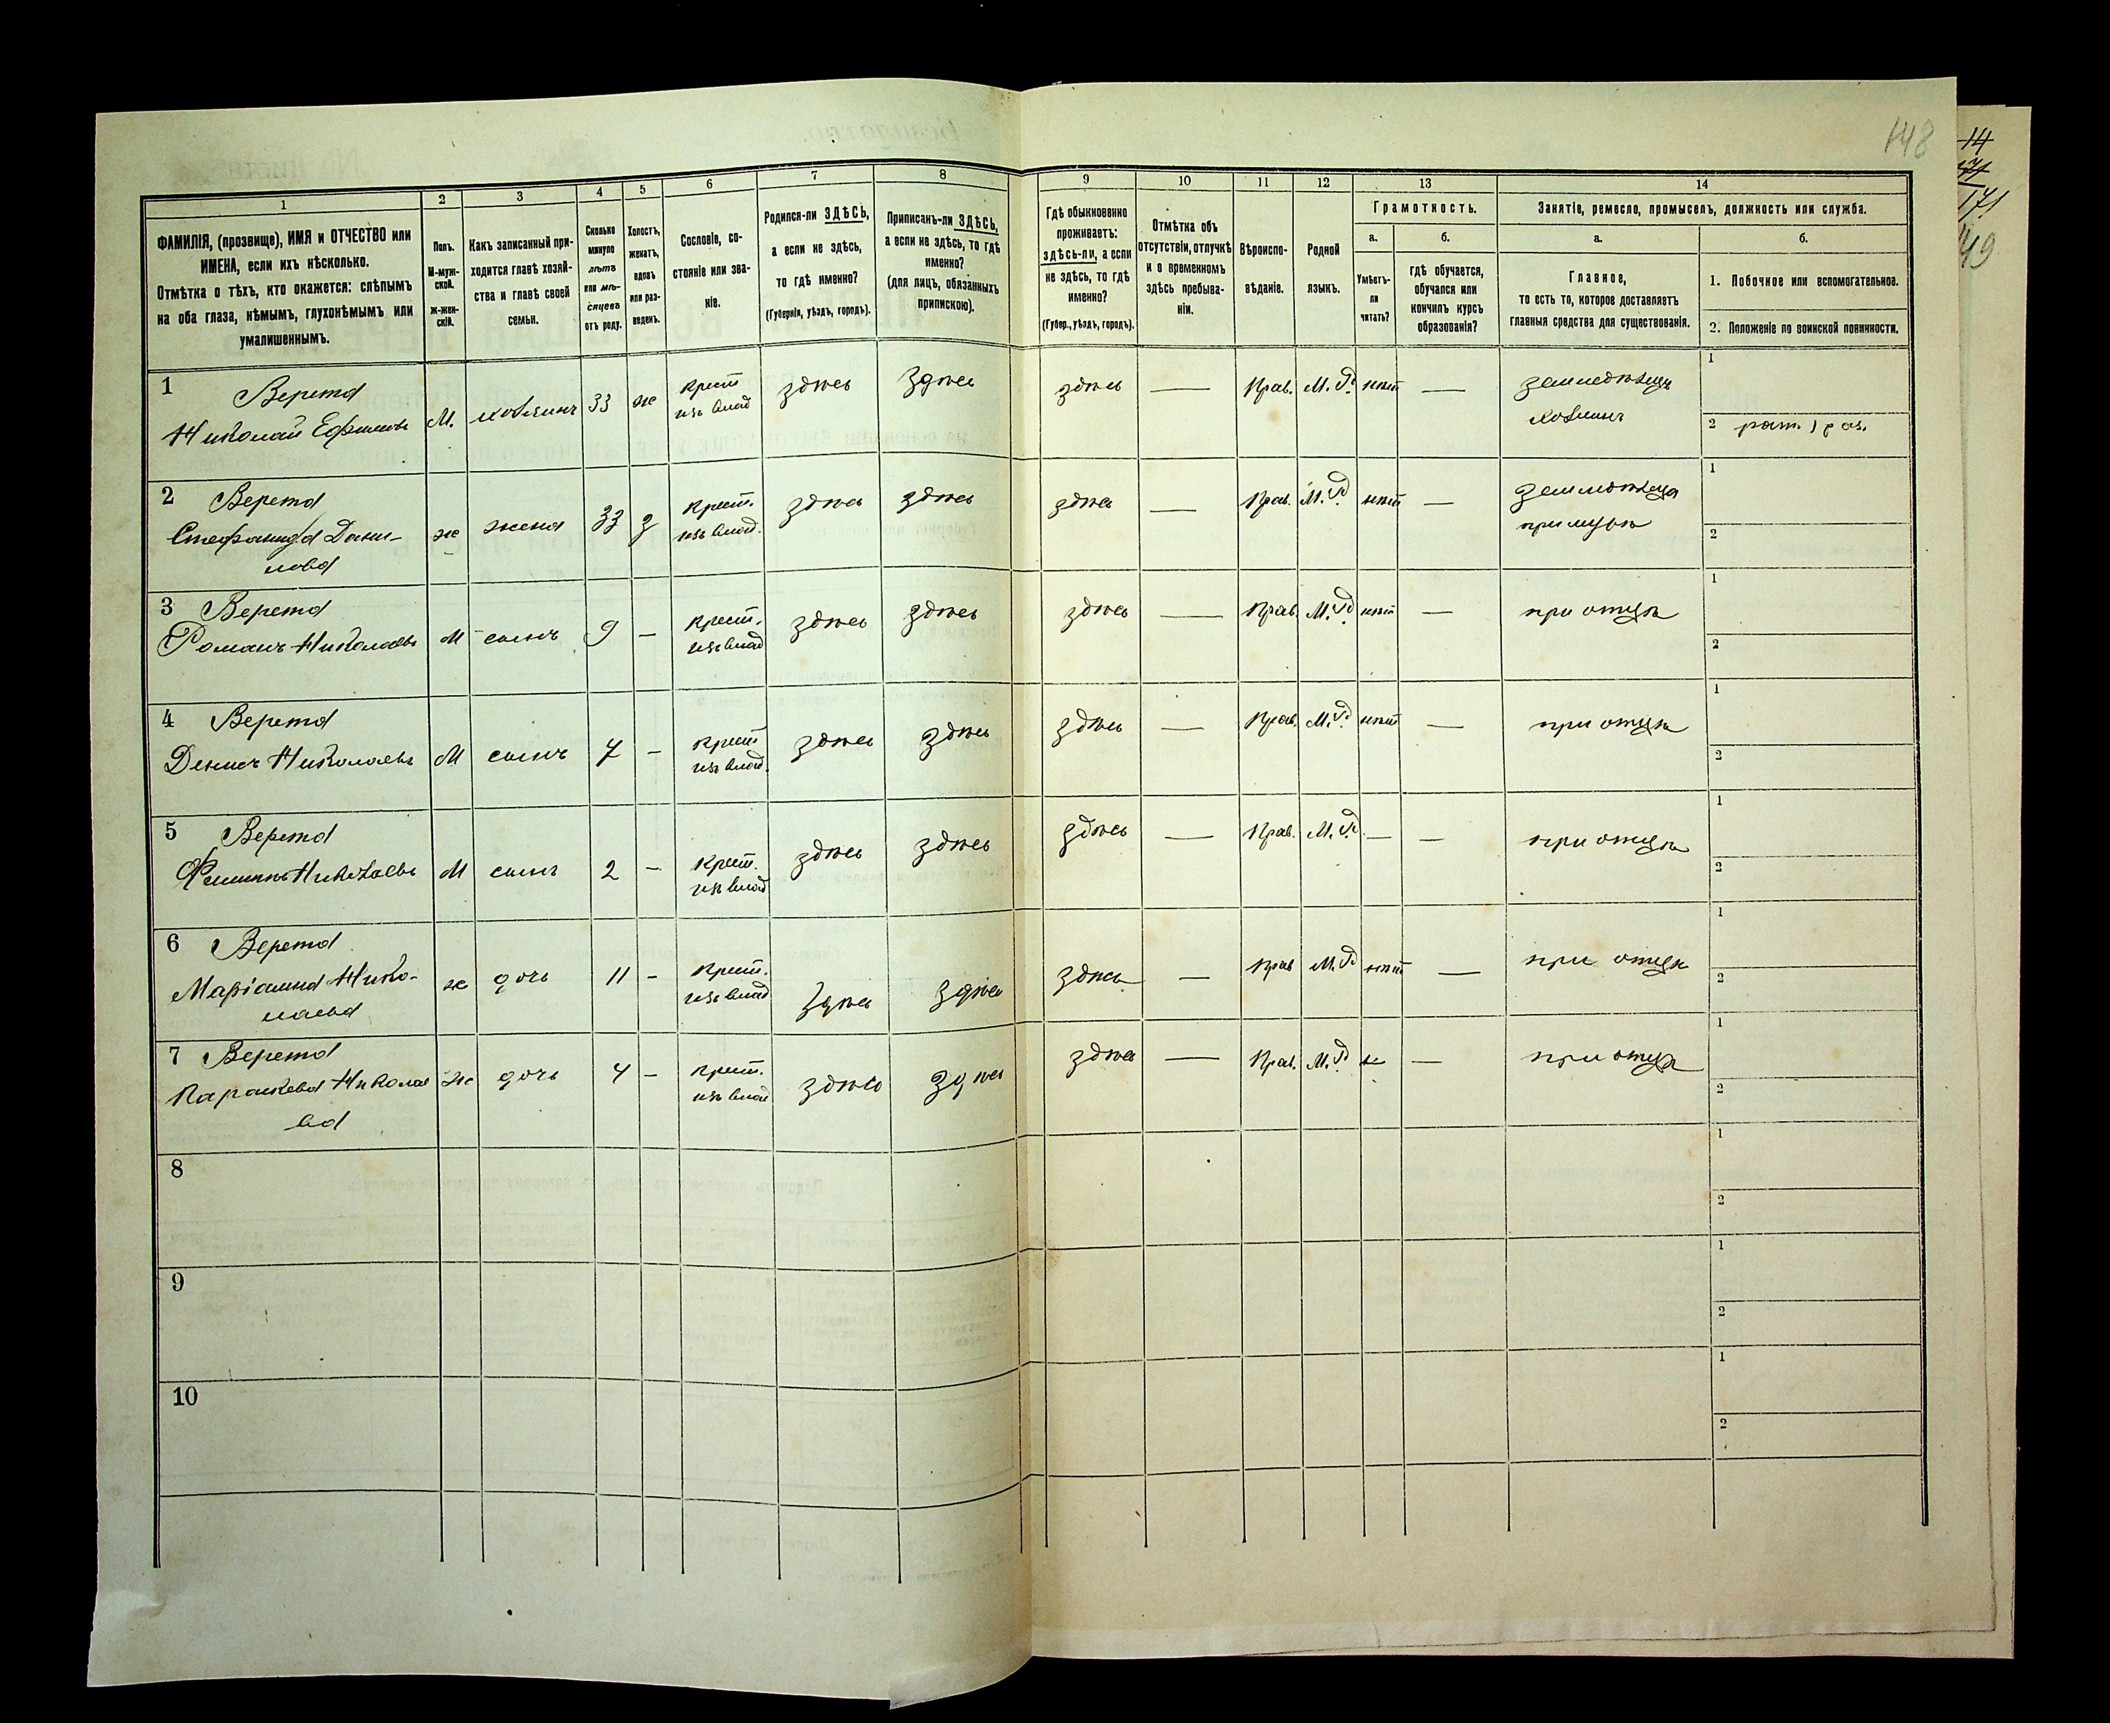 148
14
171
149
1
2
3
4
5
6
7
8
9
10
11
12
13
14
ФАМИЛІЯ, (прозвище), ИМЯ и ОТЧЕСТВО или
ИМЕНА, если ихъ нѣсколько.
Отмѣтка о тѣхъ, кто окажется: слѣпымъ
на оба глаза, нѣмымъ, глухонѣмымъ или
умалишеннымъ.
Полъ.
М-муж-
ской.
Ж-жен-
скій.
Какъ записанный при-
ходится главѣ хозяй-
ства и главѣ своей
семьи.
Сколько
минуло
лѣтъ
или мѣ-
сяцевъ
отъ роду.
Холостъ,
женатъ,
вдовъ
или раз-
веденъ.
Сословіе, со-
стояніе или зва-
ніе.
Родился-ли ЗДѢСЬ,
а если не здѣсь,
то гдѣ именно?
(Губернія, уѣздъ, городъ).
Приписанъ-ли ЗДѢСЬ,
а если не здѣсь, то гдѣ
именно?
(для лицъ, обязанныхъ
припискою).
Гдѣ обыкновенно
проживаетъ:
здѣсь-ли, а если
не здѣсь, то гдѣ
именно?
(Губер., уѣздъ, городъ).
Отмѣтка объ
отсутствіи, отлучкѣ
и о временномъ
здѣсь пребыва-
ніи.
Вѣроиспо-
вѣданіе.
Родной
языкъ.
Грамотность.
а.
Умѣетъ-
ли
читать?
б.
гдѣ обучается,
обучался или
кончилъ курсъ
образованія?
Занятіе, ремесло, промыселъ, должность или служба.
а.
Главное,
то есть то, которое доставляетъ
главныя средства для существованія.
б.
1. Побочное или вспомогательное.
2. Положеніе по воинской повинности.
1 Верета
Николай Ефимовъ М. хозяинъ 33 ж крест изъ влад здѣсь здѣсь здѣсь — Прав. М.Р. нѣт — земледѣлецъ хозяинъ
1
2 рат. 1 раз.
2 Верета
Стефанида Дани-
лова ж жена 33 з крест. изъ влад. здѣсь здѣсь здѣсь — Прав. М.Р. нѣт — земледѣлица при мужѣ
1
2
3 Верета
Романъ Николаевъ М сынъ 9 — крест. изъ влад здѣсь здѣсь здѣсь — Прав. М.Р. нѣт — при отцѣ
1
2
4 Верета
Денисъ Николаевъ М сынъ 7 — крест изъ влад. здѣсь здѣсь здѣсь — Прав. М.Р. нѣт — при отцѣ
1
2
5 Верета
Филиппъ Николаевъ М сынъ 2 — крест. изъ влад здѣсь здѣсь здѣсь — Прав. М.Р. — — при отцѣ
1
2
6 Верета
Маріанна Нико-
лаева ж дочь 11 — крест. изъ влад здѣсь здѣсь здѣсь — Прав М.Р. нѣт — при отцѣ
1
2
7 Верета
Параскева Николае
ва ж дочь 4 — крест. изъ влад здѣсь здѣсь здѣсь — Прав. М.Р. н — при отцѣ
1
2
8
1
2
9
1
2
10
1
2